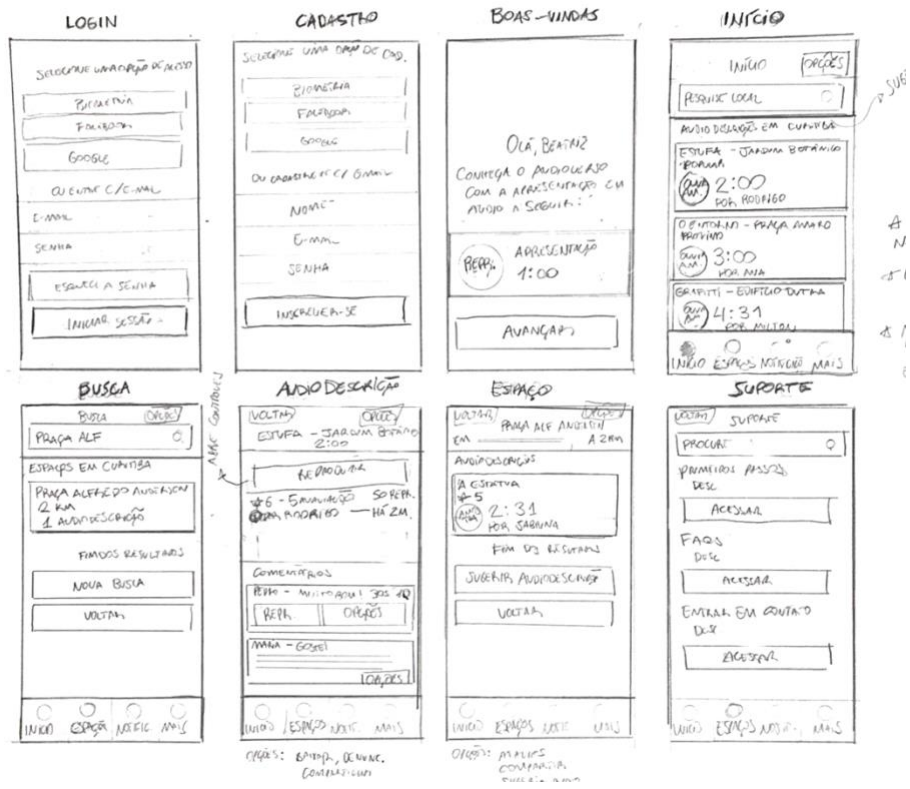 LOGIN
SELECIONE UMA OPÇÃO DE ACESSO
BIOMETRIA
FACEBOOK
GOOGLE
OU ENTRE C/ E-MAIL
E-MAIL
SENHA
ESQUECI A SENHA
INICIAR SESSÃO
CADASTRO
SELECIONE UMA OPÇÃO DE CAD.
BIOMETRIA
FACEBOOK
GOOGLE
OU CADASTRE-SE C/ GMAIL
NOME
E-MAIL
SENHA
INSCREVER-SE
BOAS-VINDAS
OLÁ, BEATRIZ
CONHEÇA O AUDIOVERSO
COM A APRESENTAÇÃO EM
ÁUDIO A SEGUIR:
REPR.
APRESENTAÇÃO
1:00
AVANÇAR
INÍCIO
INÍCIO
OPÇÕES
PESQUISE LOCAL
AUDIODESCRIÇÕES EM CURITIBA
ESTUFA - JARDIM BOTÂNICO
POPULAR
2:00
POR RODRIGO
O ENTORNO - PRAÇA
3:00
POR MIA
GRAFITI - EDIFÍCIO DUTRA
4:31
POR MILTON
INÍCIO ESPAÇOS MAIS
BUSCA
BUSCA
OPÇÕES
PRAÇA ALF
ESPAÇOS EM CURITIBA
PRAÇA ALFREDO ANDERSEN
2 KM
1 AUDIODESCRIÇÃO
FIM DOS RESULTADOS
NOVA BUSCA
VOLTAR
INÍCIO ESPAÇOS NOTIC. MAIS
ABRE CONTROLES
AUDIODESCRIÇÃO
VOLTAR
OPÇÕES
ESTUFA - JARDIM BOTÂNICO
2:00
REPRODUZIR
50 REPR.
POR RODRIGO — HÁ 2M.
COMENTÁRIOS
REPR.
OPÇÕES
MARIA - GOSTEI
OPÇÕES
INÍCIO ESPAÇOS NOTIC. MAIS
OPÇÕES:
ESPAÇO
VOLTAR
OPÇÕES
PRAÇA ALF ANDERSEN
EM
A 2 KM
AUDIODESCRIÇÕES
A ESTÁTUA
5
2:31
POR SABRINA
FIM DOS RESULTADOS
SUGERIR AUDIODESCRIÇÃO
VOLTAR
INÍCIO ESPAÇOS NOTIC. MAIS
OPÇÕES:
COMPARTIR
SUPORTE
VOLTAR
SUPORTE
PROCURE
PRIMEIROS PASSOS
DESC
ACESSAR
FAQS
DESC
ACESSAR
ENTRAR EM CONTATO
DESC
ACESSAR
INÍCIO ESPAÇOS NOTIC. MAIS